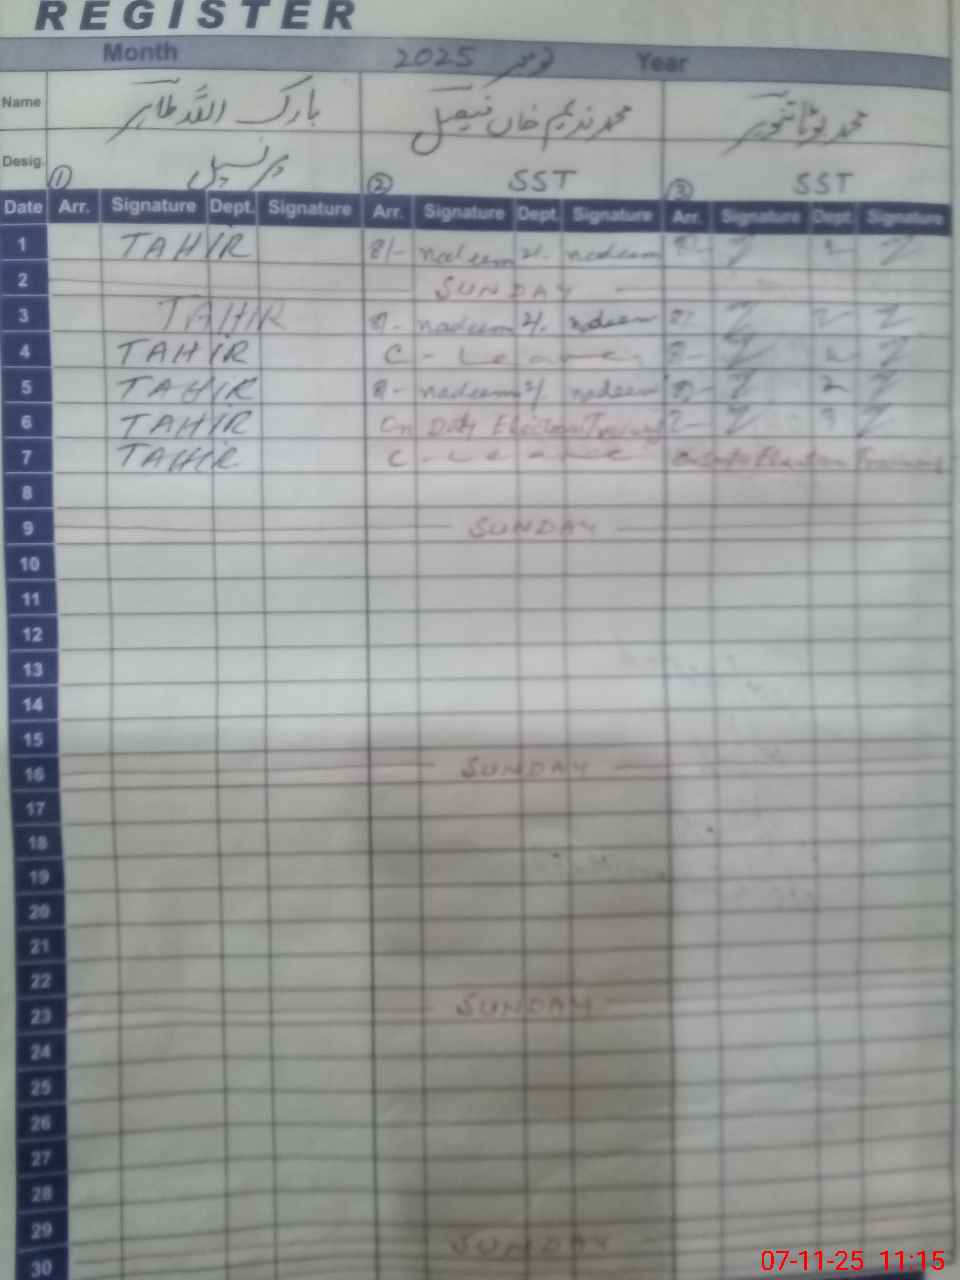 REGISTER
Month نومبر 2025 Year
Name بارک اللہ طاہر محمد ندیم خاں فیصل محمد بوٹا تنویر
Desig. ① پرنسپل ② SST ③ SST
Date Arr. Signature Dept. Signature Arr. Signature Dept. Signature Arr. Signature Dept. Signature
1 TAHIR 8/- nadeem 2/- nadeem
2 SUNDAY
3 TAHIR 8/- nadeem 2/. nadeem
4 TAHIR C - Leave
5 TAHIR 8/- nadeem 2/. nadeem
6 TAHIR On Duty Election Training
7 TAHIR C - Leave On Duty Election Training
8
9 SUNDAY
10
11
12
13
14
15
16 SUNDAY
17
18
19
20
21
22
23 SUNDAY
24
25
26
27
28
29
SUNDAY
30
07-11-25 11:15